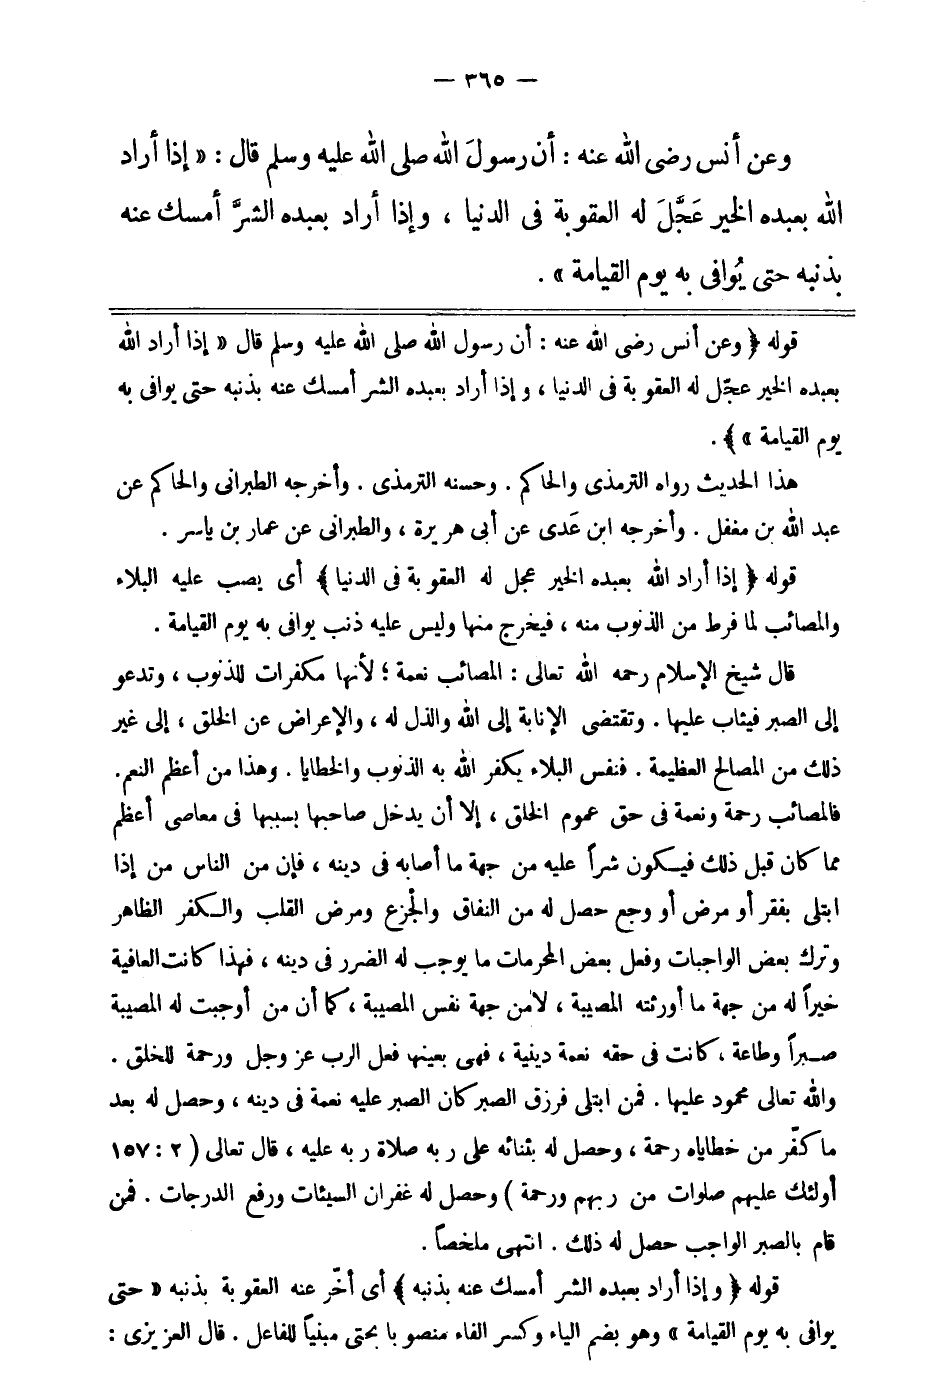 — ٣٦٥ —
وعن أنس رضى الله عنه : أن رسولَ الله صلى الله عليه وسلم قال : « إذا أراد
الله بعبده الخير عَجَّلَ له العقوبة فى الدنيا ، وإذا أراد بعبده الشرَّ أمسك عنه
بذنبه حتى يُوافى به يوم القيامة » .
قوله ﴿ وعن أنس رضى الله عنه : أن رسول الله صلى الله عليه وسلم قال « إذا أراد الله
بعبده الخير عجّل له العقوبة فى الدنيا ، وإذا أراد بعبده الشر أمسك عنه بذنبه حتى يوافى به
يوم القيامة » ﴾ .
هذا الحديث رواه الترمذى والحاكم . وحسنه الترمذى . وأخرجه الطبرانى والحاكم عن
عبد الله بن مغفل . وأخرجه ابن عَدى عن أبى هريرة ، والطبرانى عن عمار بن ياسر .
قوله ﴿ إذا أراد الله بعبده الخير عجل له العقوبة فى الدنيا ﴾ أى يصب عليه البلاء
والمصائب لما فرط من الذنوب منه ، فيخرج منها وليس عليه ذنب يوافى به يوم القيامة .
قال شيخ الإسلام رحمه الله تعالى : المصائب نعمة ؛ لأنها مكفرات للذنوب ، وتدعو
إلى الصبر فيثاب عليها . وتقتضى الإنابة إلى الله والذل له ، والإعراض عن الخلق ، إلى غير
ذلك من المصالح العظيمة . فنفس البلاء يكفر الله به الذنوب والخطايا . وهذا من أعظم النعم .
فالمصائب رحمة ونعمة فى حق عموم الخلق ، إلا أن يدخل صاحبها بسببها فى معاصى أعظم
مما كان قبل ذلك فيكون شراً عليه من جهة ما أصابه فى دينه ، فإن من الناس من إذا
ابتلى بفقر أو مرض أو وجع حصل له من النفاق والجزع ومرض القلب والكفر الظاهر
وترك بعض الواجبات وفعل بعض المحرمات ما يوجب له الضرر فى دينه ، فهذا كانت العافية
خيراً له من جهة ما أورثته المصيبة ، لا من جهة نفس المصيبة ، كما أن من أوجبت له المصيبة
صبراً وطاعة ، كانت فى حقه نعمة دينية ، فهى بعينها فعل الرب عز وجل ورحمة للخلق .
والله تعالى محمود عليها . فمن ابتلى فرزق الصبر كان الصبر عليه نعمة فى دينه ، وحصل له بعد
ما كفّر من خطاياه رحمة ، وحصل له بثنائه على ربه صلاة ربه عليه ، قال تعالى ( ٢ : ١٥٧
أولئك عليهم صلوات من ربهم ورحمة ) وحصل له غفران السيئات ورفع الدرجات . فمن
قام بالصبر الواجب حصل له ذلك . انتهى ملخصاً .
قوله ﴿ وإذا أراد بعبده الشر أمسك عنه بذنبه ﴾ أى أخّر عنه العقوبة بذنبه « حتى
يوافى به يوم القيامة » وهو بضم الياء وكسر الفاء منصوبا بحتى مبنياً للفاعل . قال العزيزى :